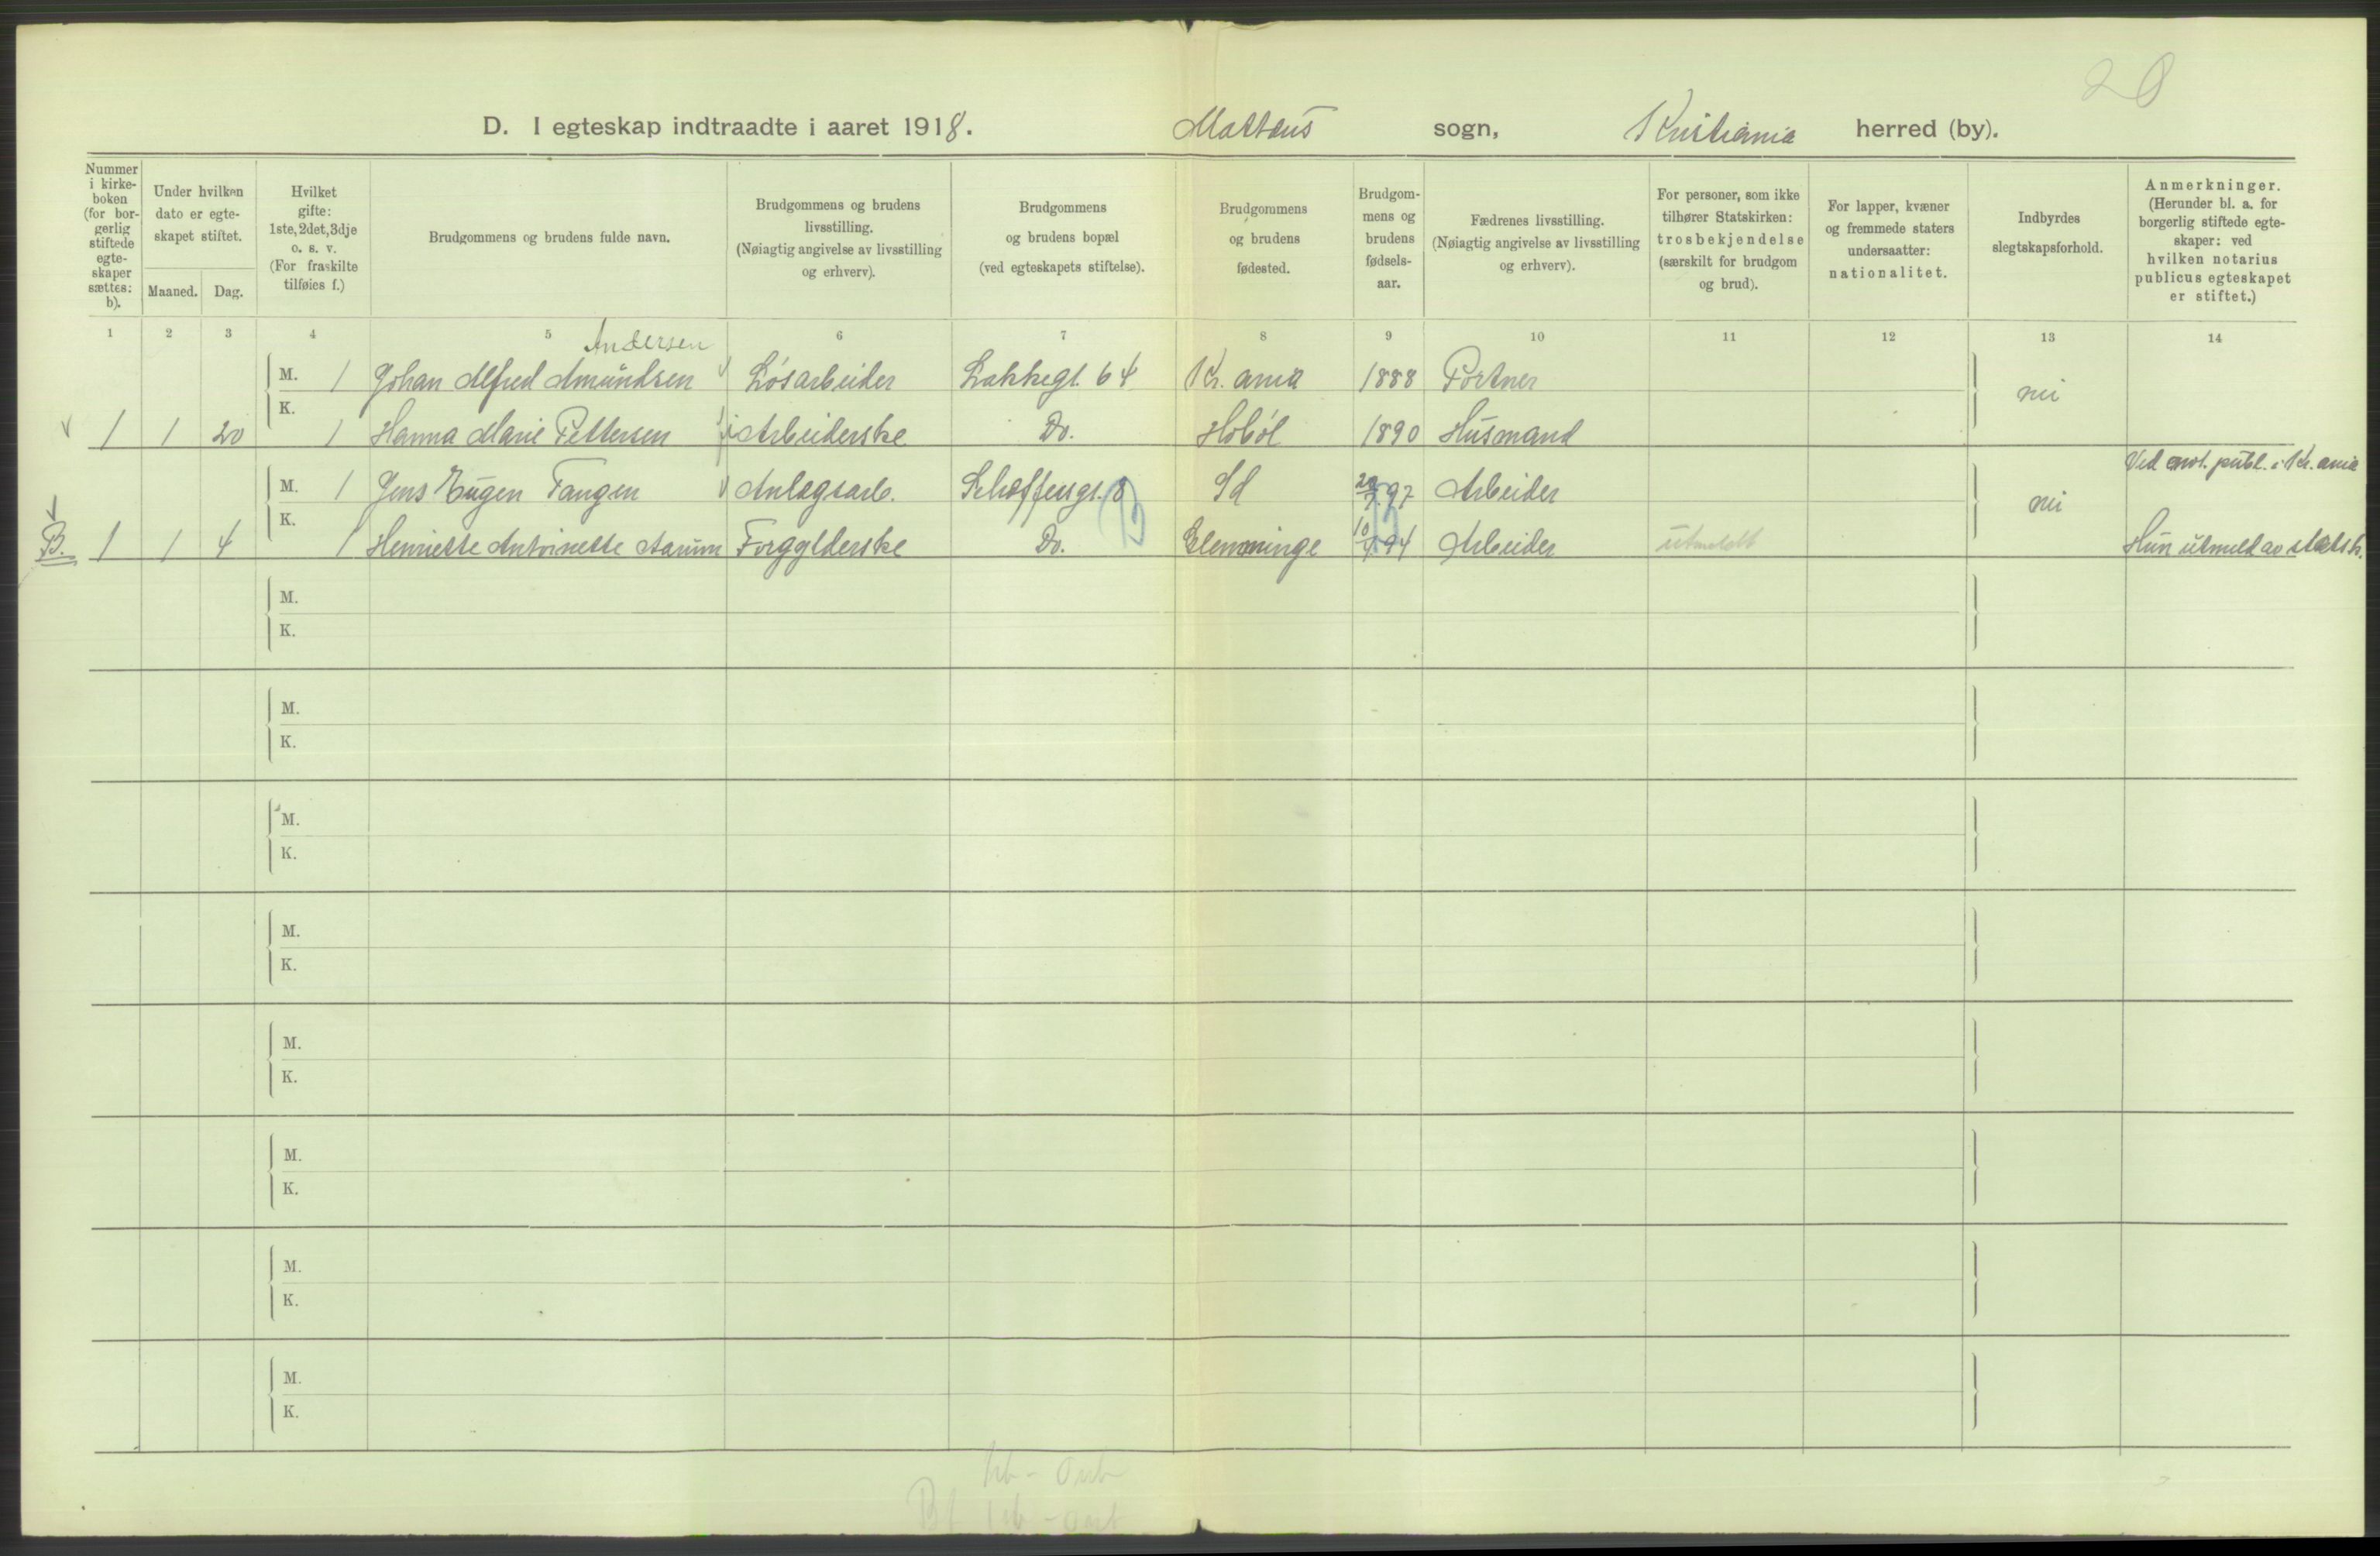 20
D. I egteskap indtraadte i aaret 1918. Mattæus sogn, Kristiania herred (by).
Nummer i kirke-boken (for bor-gerlig stiftede egte-skaper sættes: b).
Under hvilken dato er egte-skapet stiftet.
Maaned. Dag.
Hvilket gifte: 1ste, 2det, 3dje o. s. v. (For fraskilte tilføies f.)
Brudgommens og brudens fulde navn.
Brudgommens og brudens livsstilling. (Nøiagtig angivelse av livsstilling og erhverv).
Brudgommens og brudens bopæl (ved egteskapets stiftelse).
Brudgommens og brudens fødested.
Brudgom-mens og brudens fødsels-aar.
Fædrenes livsstilling. (Nøiagtig angivelse av livsstilling og erhverv).
For personer, som ikke tilhører Statskirken: trosbekjendelse (særskilt for brudgom og brud).
For lapper, kvæner og fremmede staters undersaatter: nationalitet.
Indbyrdes slegtskapsforhold.
Anmerkninger. (Herunder bl. a. for borgerlig stiftede egte-skaper: ved hvilken notarius publicus egteskapet er stiftet.)
1 2 3 4 5 6 7 8 9 10 11 12 13 14
Andersen
M. 1 Johan Alfred Amundsen Løsarbeider Lakkegt. 64 Kr.ania 1888 Portner nei
1 1 20 K. 1 Hanna Marie Pettersen Arbeiderske Do. Hobøl 1890 Husmand
M. 1 Jens Eugen Tangen Anlægsarb. Schæffersgt. 8 Sd 97 Arbeider nei Ved not. publ. i Kr.ania
B. 1 1 4 K. 1 Henriette Antoinette Aarum Forgylderske Do. Glemminge 10/4 94 Arbeider utmeldt Hun utmeld av statsk.
M.
K.
M.
K.
M.
K.
M.
K.
M.
K.
M.
K.
M.
K.
M.
K.